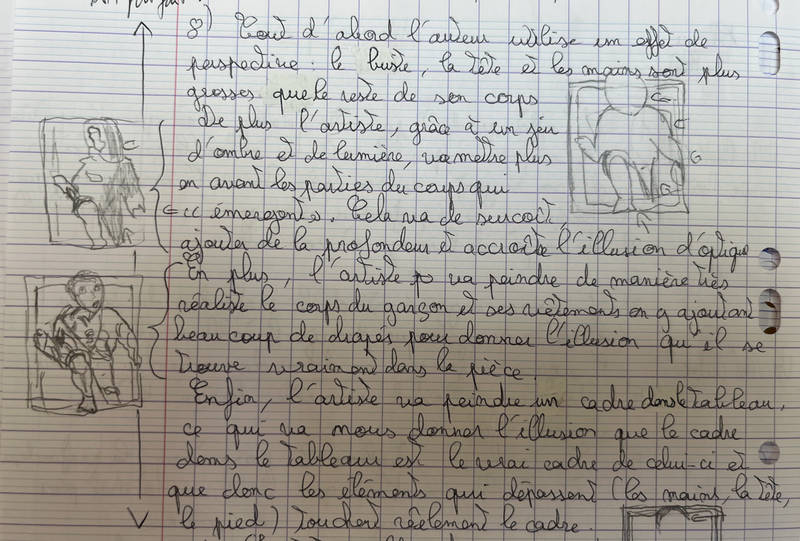 8) Tout d'abord l'auteur utilise un effet de
perspective : le buste, la tête et les mains sont plus
grosses que le reste de son corps
De plus l'artiste, grâce à un jeu
d'ombre et de lumière, va mettre plus
en avant les parties du corps qui
« émergent ». Cela va de surcoît
ajouter de la profondeur et accroître l'illusion d'optique
En plus, l'artiste va peindre de manière très
réaliste le corps du garçon et ses vêtements en y ajoutant
beaucoup de drapés pour donner l'illusion qu'il se
trouve vraiment dans la pièce.
Enfin, l'artiste va peindre un cadre dans le tableau,
ce qui va nous donner l'illusion que le cadre
dans le tableau est le vrai cadre de celui-ci et
que donc les éléments qui dépassent (les mains, la tête,
le pied) touchent réelement le cadre.